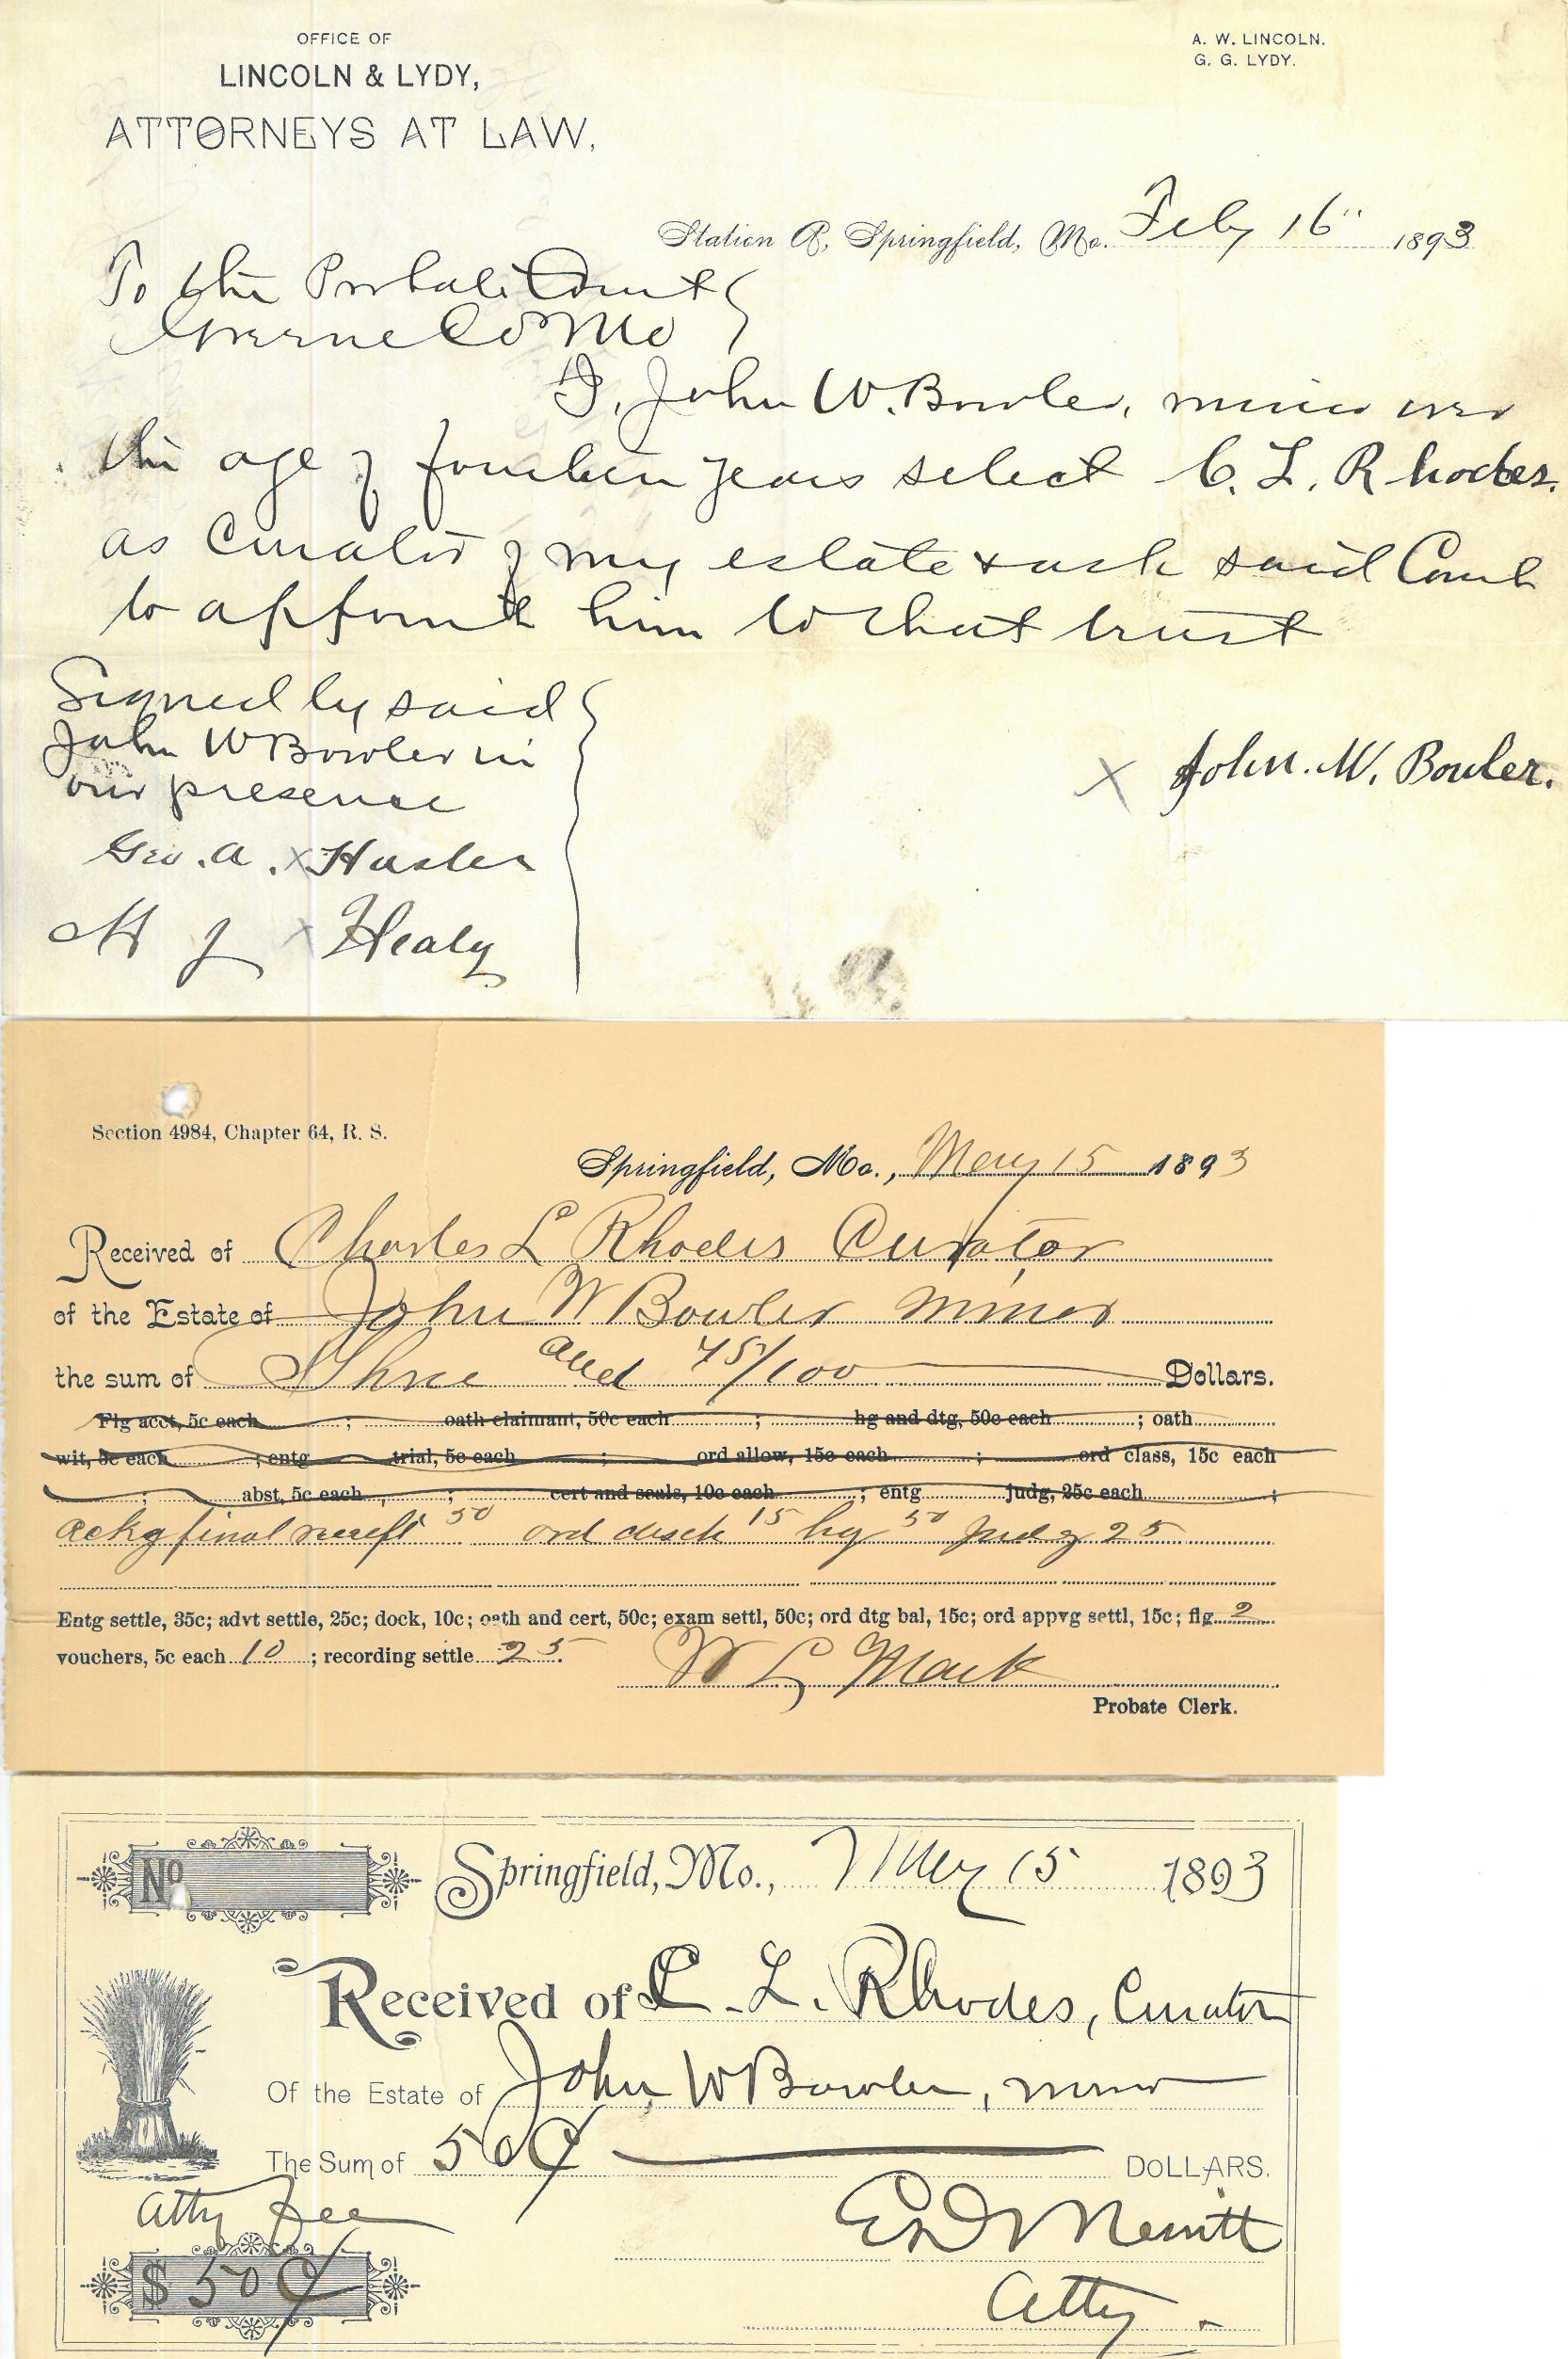 OFFICE OF
LINCOLN & LYDY,
ATTORNEYS AT LAW.
A. W. LINCOLN.
G. G. LYDY.
Station A, Springfield, Mo. Feby 16" 1893
To the Probate Court
Greene Co Mo
I, John W. Bowler, minor over
the age of fourteen years select C. L. Rhodes
as Curator of my estate & ask said Court
to appoint him to that trust
Signed by said
John W Bowler in
our presence
x John. W. Bowler.
Geo. A. x Hasler
M J x Healy
Section 4984, Chapter 64, R. S.
Springfield, Mo., May 15 1893
Received of Charles L Rhodes Curator
of the Estate of John W Bowler minor
the sum of Three and 45/100 Dollars.
Flg acct, 5c each ; oath claimant, 50c each ; hg and dtg, 50c each ; oath
wit, 5c each ; entg trial, 5c each ; ord allow, 15c each ; ord class, 15c each
; abst, 5c each ; cert and seals, 10c each ; entg judg, 25c each ;
ackg final receipt 50 ord disch 15 hg 50 Judg 25
Entg settle, 35c; advt settle, 25c; dock, 10c; oath and cert, 50c; exam settl, 50c; ord dtg bal, 15c; ord appvg settl, 15c; flg 2
vouchers, 5c each 10 ; recording settle 25.
W L Mack
Probate Clerk.
No Springfield, Mo., May 15 1893
Received of C. L. Rhodes, Curator
Of the Estate of John W Bowler, minor
The Sum of 50¢ DOLLARS.
Atty fee
$ 50¢
E D Merritt
Atty.